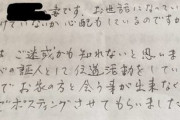 幸です。お世話になってい
けていないか心配もしているのですか
は ご迷惑かも知れないと思いま
の証人として伝道活動をしてい
でお家の方と会う事が出来なく
でポスティングさせてもらいました